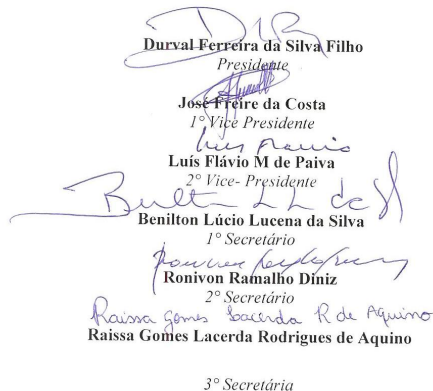 Durval Ferreira da Silva Filho
Presidente
José Freire da Costa
1° Vice Presidente
Luís Flávio M de Paiva
2° Vice- Presidente
Benilton L L da S
Benilton Lúcio Lucena da Silva
1° Secretário
Ronivon Ramalho Diniz
2° Secretário
Raissa Gomes Lacerda R de Aquino
Raissa Gomes Lacerda Rodrigues de Aquino
3° Secretária